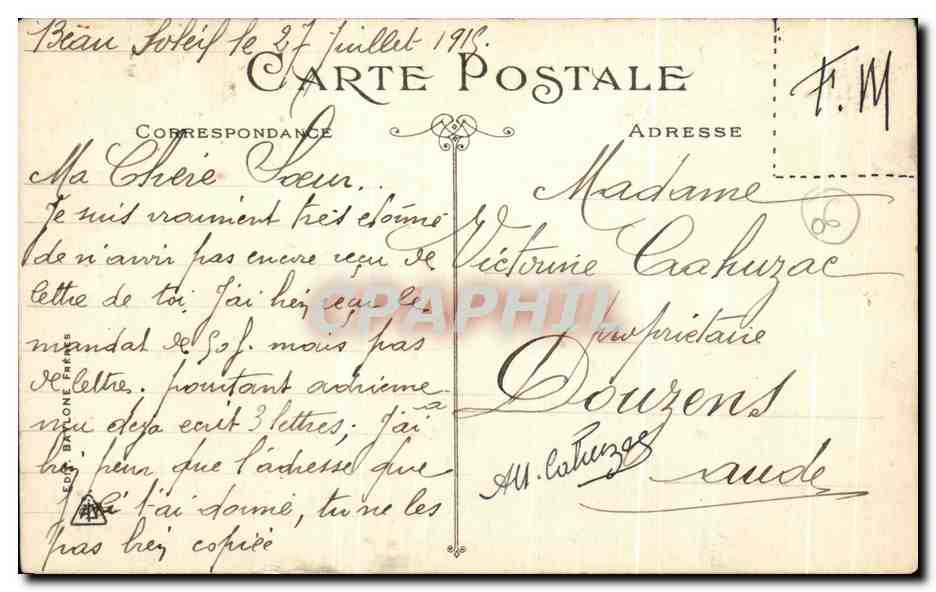 Beau Soleil le 27 Juillet 1915.
CARTE POSTALE
F.M
CORRESPONDANCE
ADRESSE
Ma Chère Sœur..
Je suis vraiment très etonné
de n'avoir pas encore reçu de
lettre de toi. J'ai bien reçu le
mandat de 50f. mais pas
de lettre. pourtant adrienne
m'a deja ecrit 3 lettres, J'ai
bien peur que l'adresse que
je t'ai donné, tu ne les
pas bien copiée
Madame
Victorine Cahuzac
propriétaire
Douzens
aude
Att. Cahuzac
EDIT. BAYLONE FRÈRES
CPAPHIL
06